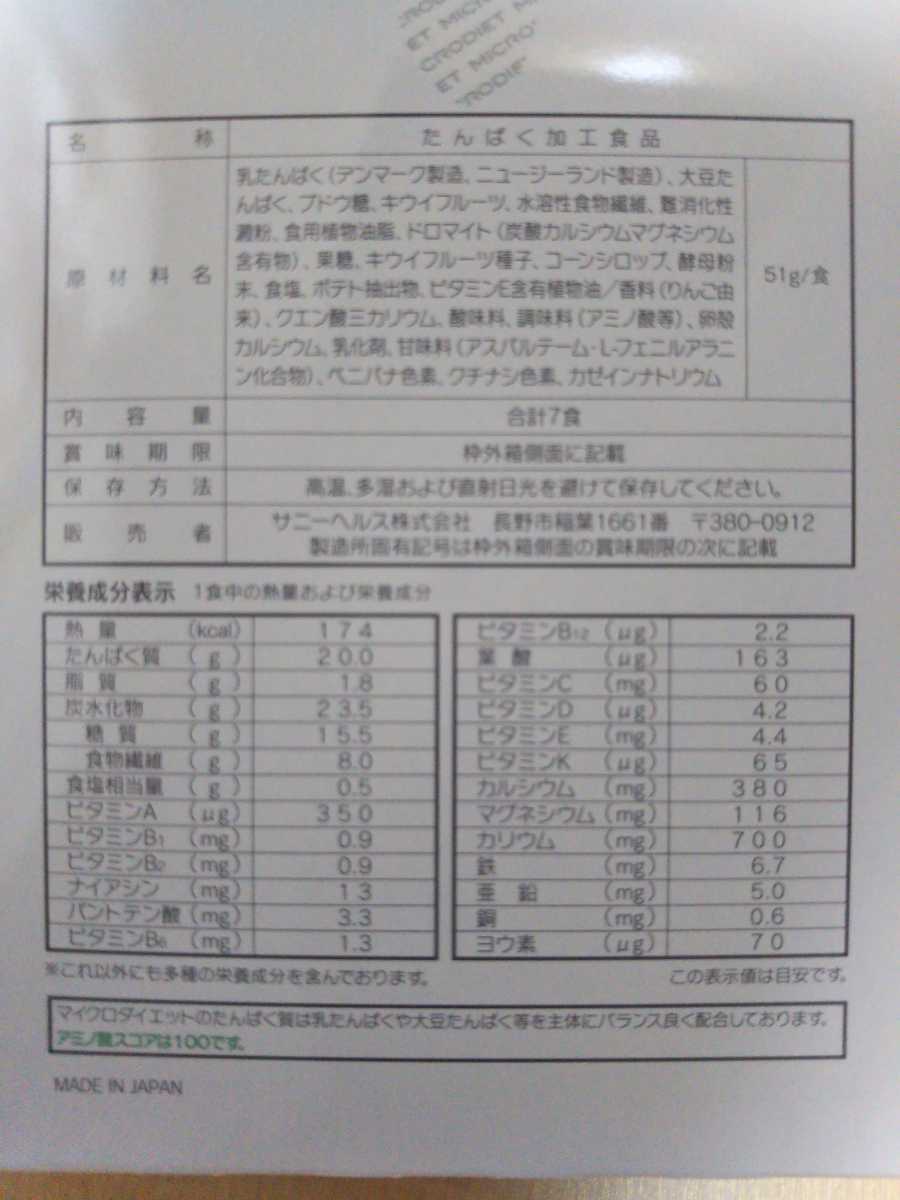 CRODIET
ET MICRO
CRODIET
ET MICRO
名称 たんぱく加工食品
原材料名 乳たんぱく(デンマーク製造、ニュージーランド製造)、大豆た
んぱく、ブドウ糖、キウイフルーツ、水溶性食物繊維、難消化性
澱粉、食用植物油脂、ドロマイト(炭酸カルシウムマグネシウム
含有物)、果糖、キウイフルーツ種子、コーンシロップ、酵母粉
末、食塩、ポテト抽出物、ビタミンE含有植物油/香料(りんご由
来)、クエン酸三カリウム、酸味料、調味料(アミノ酸等)、卵殻
カルシウム、乳化剤、甘味料(アスパルテーム・L-フェニルアラニ
ン化合物)、ベニバナ色素、クチナシ色素、カゼインナトリウム
51g/食
内容量 合計7食
賞味期限 枠外箱側面に記載
保存方法 高温、多湿および直射日光を避けて保存してください。
販売者 サニーヘルス株式会社 長野市稲葉1661番 〒380-0912
製造所固有記号は枠外箱側面の賞味期限の次に記載
栄養成分表示 1食中の熱量および栄養成分
熱量 (kcal) 174
たんぱく質 (g) 20.0
脂質 (g) 1.8
炭水化物 (g) 23.5
糖質 (g) 15.5
食物繊維 (g) 8.0
食塩相当量 (g) 0.5
ビタミンA (μg) 350
ビタミンB1 (mg) 0.9
ビタミンB2 (mg) 0.9
ナイアシン (mg) 13
パントテン酸 (mg) 3.3
ビタミンB6 (mg) 1.3
ビタミンB12 (μg) 2.2
葉酸 (μg) 163
ビタミンC (mg) 60
ビタミンD (μg) 4.2
ビタミンE (mg) 4.4
ビタミンK (μg) 65
カルシウム (mg) 380
マグネシウム (mg) 116
カリウム (mg) 700
鉄 (mg) 6.7
亜鉛 (mg) 5.0
銅 (mg) 0.6
ヨウ素 (μg) 70
※これ以外にも多種の栄養成分を含んでおります。
この表示値は目安です。
マイクロダイエットのたんぱく質は乳たんぱくや大豆たんぱく等を主体にバランス良く配合しております。
アミノ酸スコアは100です。
MADE IN JAPAN